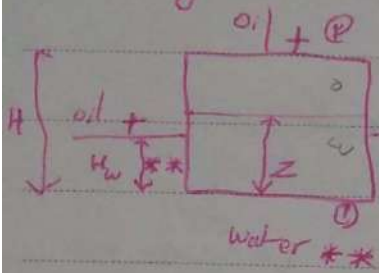 oil + P
O
H oil +
Hw ** Z W
①
water **